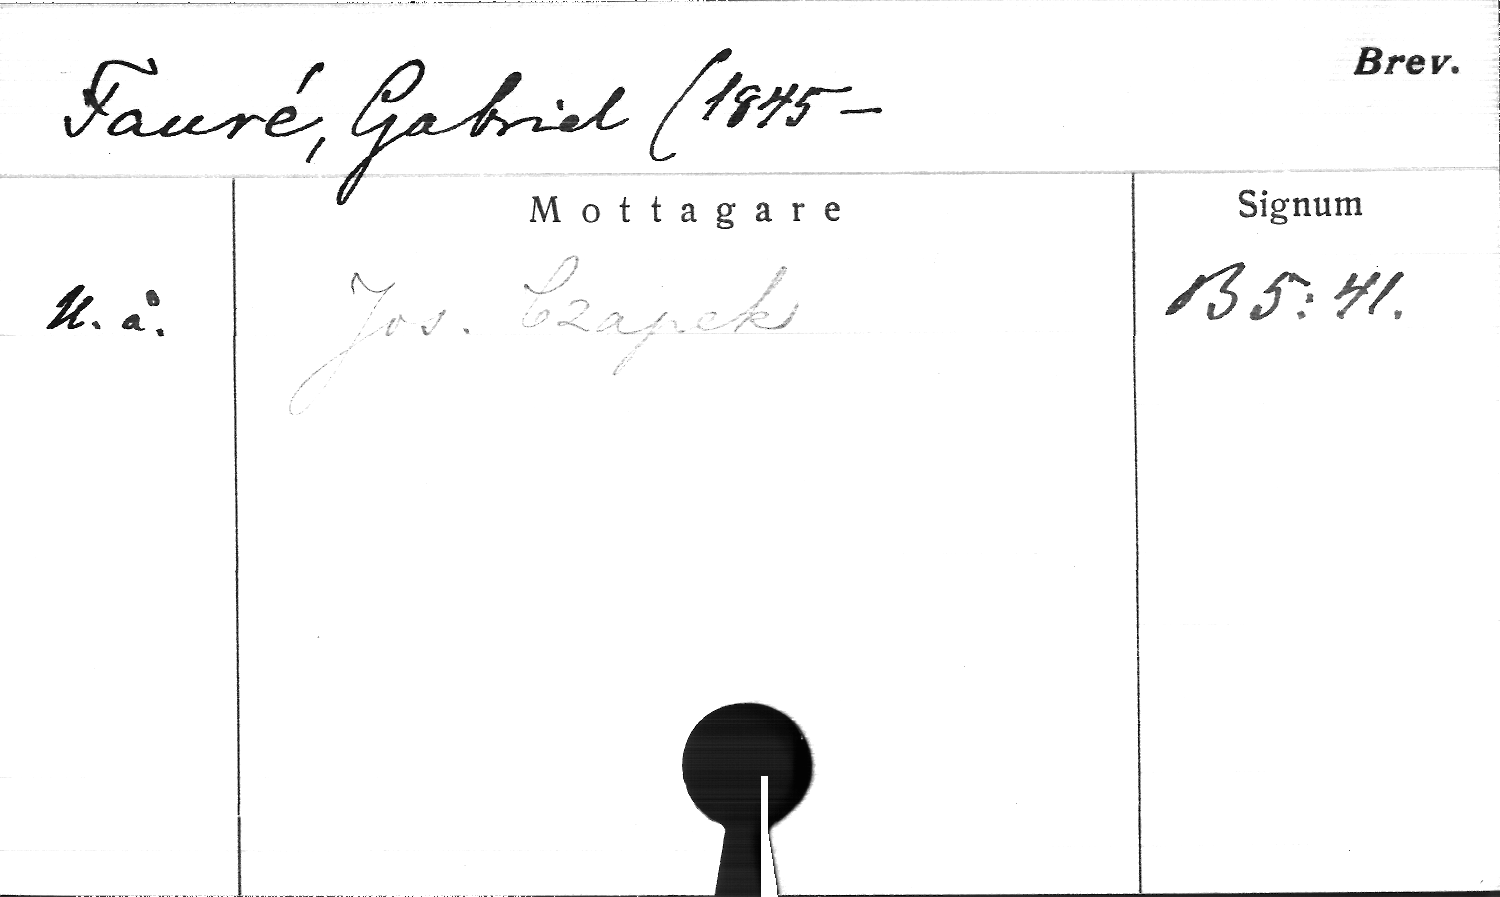 Brev.
Fauré, Gabriel (1845–
Mottagare
Signum
U. å.
Jos. Czapek
B 5: 41.